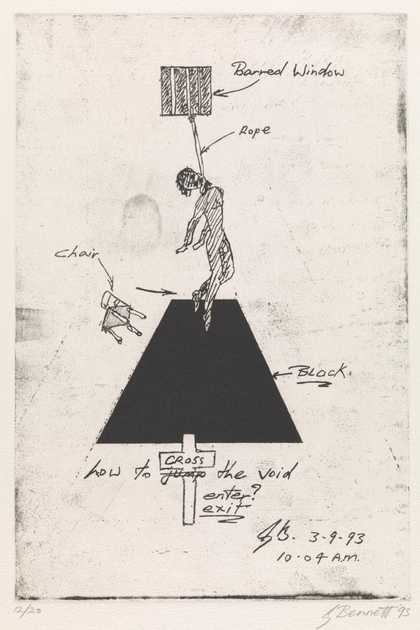 Barred Window
Rope
Chair
Black.
CROSS
how to jump the void
enter?
exit
GB. 3-9-93
10-04 A.M.
12/20
G Bennett 93